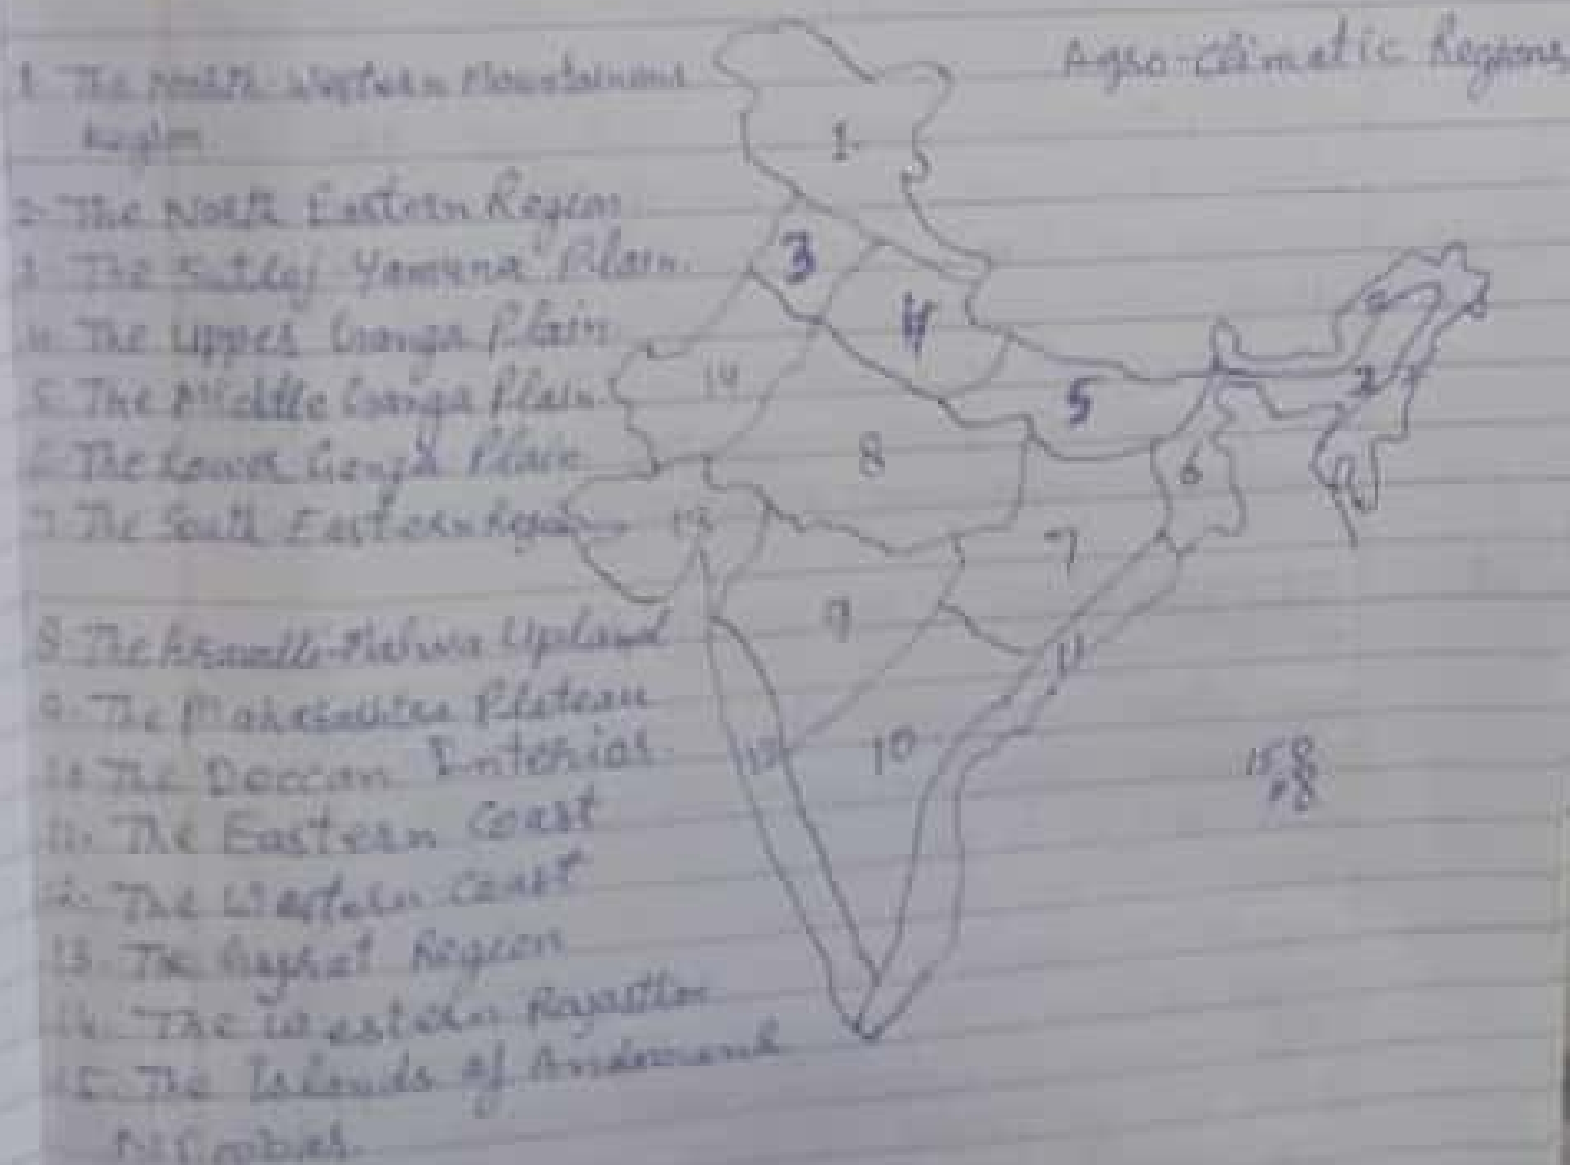 Agro-climatic Regions
1. The North Western Mountainous
Region
2. The North Eastern Region
3. The Sutlej Yamuna Plain.
4. The Upper Ganga Plain
5. The Middle Ganga Plain.
6. The Lower Ganga Plain
7. The South Eastern Region
8. The Aravalli-Malwa Upland
9. The Maharashtra Plateau
10. The Deccan Interior
11. The Eastern Coast
12. The Western Coast
13. The Gujrat Region
14. The Western Rajasthan
15. The Islands of Andaman &
Nicobar.
1.
3
4
2
14
5
2
8
6
13
7
9
11
12
10
15